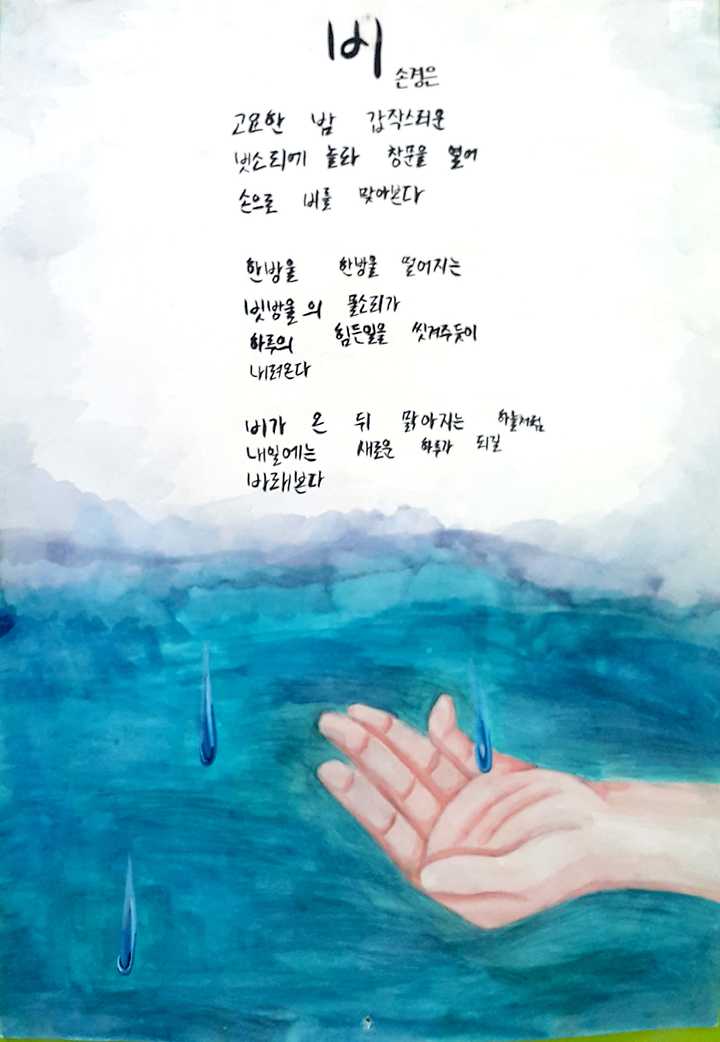 비
손경은
고요한 밤 갑작스러운
빗소리에 놀라 창문을 열어
손으로 비를 맞아본다
한방울 한방울 떨어지는
빗방울의 물소리가
하루의 힘든일을 씻겨주듯이
내려온다
비가 온 뒤 맑아지는 하늘처럼
내일에는 새로운 하루가 되길
바래본다